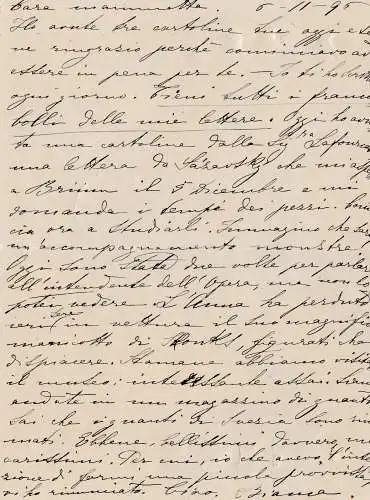 Cara mammetta. 6-11-95
Ho avute tre cartoline sue oggi e
ne ringrazio perchè cominciavo ad
essere in pena per te. Io ti ho scritto
ogni giorno. Tieni tutti i franco
bolli delle mie lettere. Oggi ho avu
ta una cartolina dalla Sig.ra Lafour
una lettera da Sázavsky che
a Brünn il 5 Dicembre e mi
domanda i tempi dei pezzi.
cia ora a studiarli. Immagino che
un accompagnamento monstre!
Oggi sono stata due volte per parlare
all'intendente dell'Opera, ma non l'o
potei vedere. L'Anna ha perduto
ieri sera in vettura il suo magnifico
maniotto di Skonks, figurati che
dispiacere. Stamane abbiamo visita
il museo: interessante assai. Siam
andate in un magazzino di guanti
sai che i guanti di Svezia sono rino
mati. Ebbene, bellissimi, davvero, ma
carissimi. Per cui, io che avevo l'inte
zione di farne una piccola provvista
vi ho rinunciato.